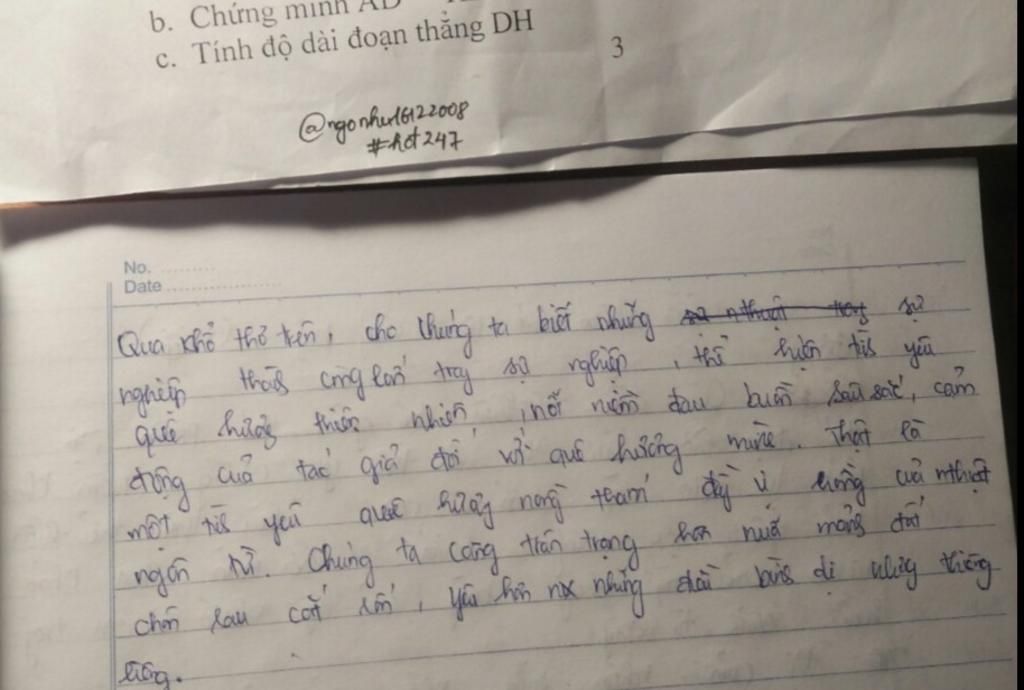 b. Chứng minh AD
c. Tính độ dài đoạn thẳng DH
3
@ngonhu16122008
#hot247
No.
Date
Qua khổ thơ trên, cho chúng ta biết những sự
nghiệp thành công lớn trong sự nghiệp, thể hiện tình yêu
quê hương thiên nhiên, nỗi niềm đau buồn sâu sắc, cảm
động của tác giả đối với quê hương mình. Thật là
một tình yêu quê hương nồng thắm đầy vị của
ngôn từ. Chúng ta càng trân trọng hơn nữa mảng đất
chôn rau cắt rốn, yêu hơn nx những điều bình dị nhưng thiêng
liêng.